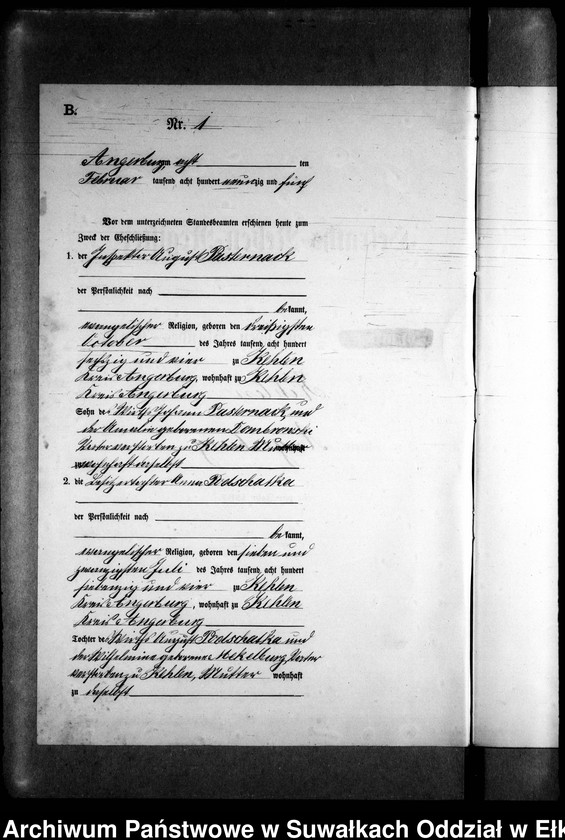 B.
Nr. 1
Angerburg, am acht ten
Februar tausend acht hundert neunzig und fünf
Vor dem unterzeichneten Standesbeamten erschienen heute zum
Zweck der Eheschließung:
1. der Inspektor August Pasternack
der Persönlichkeit nach
bekannt,
evangelischer Religion, geboren den dreißigsten
October des Jahres tausend acht hundert
sechzig und vier zu Kehlen
Kreis Angerburg, wohnhaft zu Kehlen
Kreis Angerburg
Sohn des Wirths Johann Pasternack und
der Amalie geborenen Dombrowski
Vater verstorben zu Kehlen Mutter
wohnhaft daselbst
2. die Besitzertochter Anna Podschatka
der Persönlichkeit nach
bekannt,
evangelischer Religion, geboren den sieben und
zwanzigsten Juli des Jahres tausend acht hundert
siebenzig und vier zu Kehlen
Kreis Angerburg, wohnhaft zu Kehlen
Kreis Angerburg
Tochter des Wirths August Podschatka und
der Wilhelmine geborene Mekelburg, Vater
verstorben zu Kehlen, Mutter wohnhaft
zu daselbst
Archiwum Państwowe w Suwałkach Oddział w Ełk